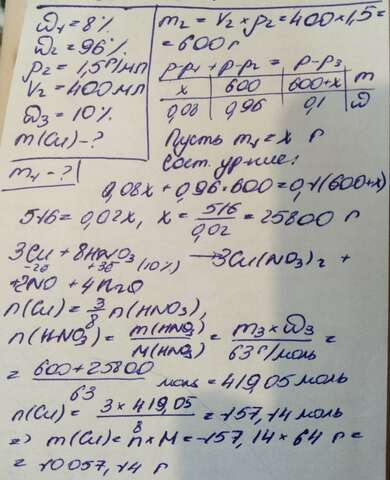 ω₁=8%
ω₂=96%
ρ₂=1,5г/мл
V₂=400мл
ω₃=10%
m(Cu)-?
m₁-?
m₂=V₂×ρ₂=400×1,5=
=600г
р-р₁ + р-р₂ = р-р₃
x | 600 | 600+x | m
0,08 | 0,96 | 0,1 | ω
Пусть m₁=x г
Сост. ур-ние:
0,08x+0,96×600=0,1(600+x)
516=0,02x, x=516/0,02=25800 г
3Cu+8HNO₃ (10%) →3Cu(NO₃)₂+
-2e +3e
+2NO+4H₂O
n(Cu)=3/8 n(HNO₃),
n(HNO₃)=m(HNO₃)/M(HNO₃)=m₃×ω₃/63г/моль=
=600+25800/63 моль=419,05 моль
n(Cu)=3×419,05/8=157,14 моль
=> m(Cu)=n×M=157,14×64 г=
=10057,14 г